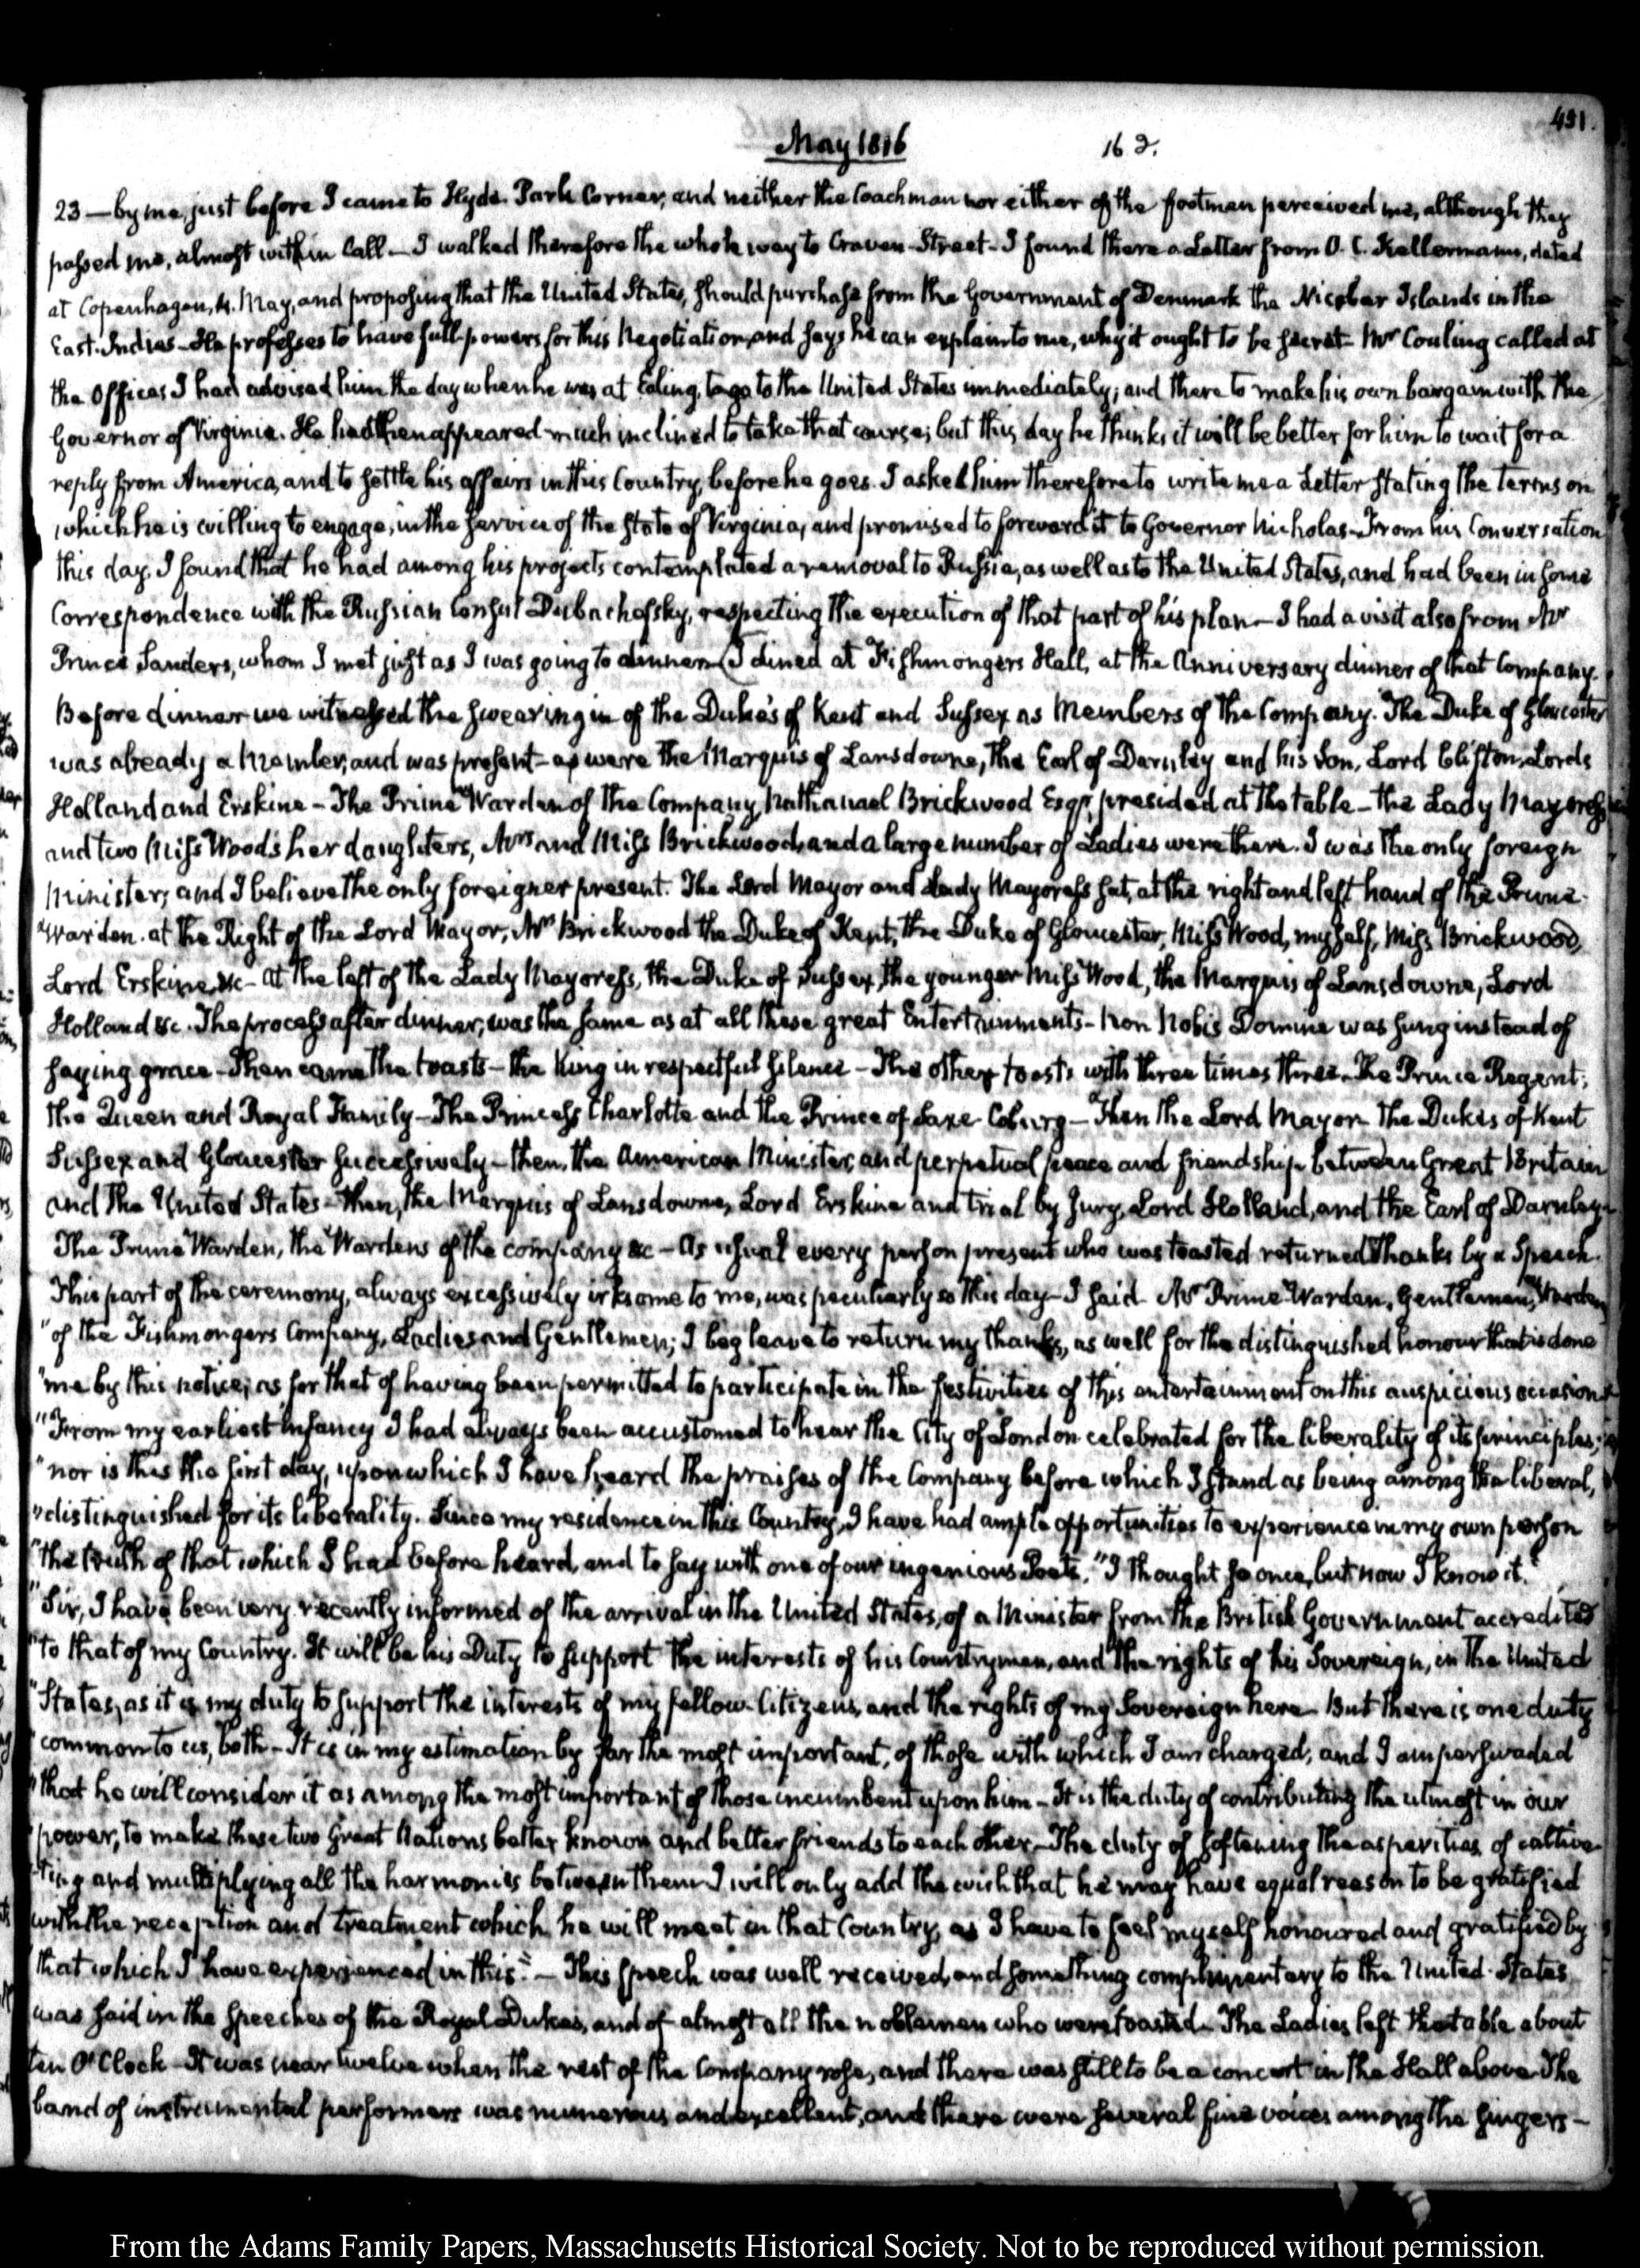 451.
May 1816
162.
23 — by me, just before I came to Hyde Park Corner, and neither the Coachman nor either of the footmen perceived me, although they
passed me, almost within Call — I walked therefore the whole way to Craven-Street — I found there a Letter from O. C. Kellermann, dated
at Copenhagen, 4. May, and proposing that the United States, should purchase from the Government of Denmark the Nicobar Islands in the
East-Indies — He professes to have full-powers for this Negotiation, and says he can explain to me, why it ought to be secret — Mr Couling called at
the Office; I had advised him the day when he was at Ealing, to go to the United States immediately; and there to make his own bargain with the
Governor of Virginia. He had then appeared much inclined to take that course; but this day he thinks it will be better for him to wait for a
reply from America, and to settle his affairs in this Country, before he goes. I asked him therefore to write me a Letter stating the terms on
which he is willing to engage, in the service of the State of Virginia, and promised to forward it to Governor Nicholas — From his Conversation
this day, I found that he had among his projects contemplated a removal to Russia, as well as to the United States, and had been in some
Correspondence with the Russian Consul Dubachefsky, respecting the execution of that part of his plan — I had a visit also from Mr
Prince Sanders, whom I met just as I was going to dinner — (I dined at Fishmongers Hall, at the Anniversary dinner of that Company.
Before dinner we witnessed the swearing in of the Duke's of Kent and Sussex as Members of the Company. The Duke of Gloucester
was already a Member, and was present — as were the Marquis of Lansdowne, the Earl of Darnley and his Son, Lord Clifton, Lords
Holland and Erskine — The Prime Warden of the Company, Nathanael Brickwood Esqr, presided at the table — the Lady Mayoress
and two Miss Woods her daughters, Mrs and Miss Brickwood, and a large number of Ladies were there. I was the only foreign
Minister, and I believe the only foreigner present. The Lord Mayor and Lady Mayoress sat, at the right and left hand of the Prime
Warden. at the Right of the Lord Mayor, Mrs Brickwood the Duke of Kent, the Duke of Gloucester, Miss Wood, myself, Miss Brickwood,
Lord Erskine &c — at the left of the Lady Mayoress, the Duke of Sussex, the younger Miss Wood, the Marquis of Lansdowne, Lord
Holland &c. The process after dinner, was the same as at all these great Entertainments — Non Nobis Domine was sung instead of
saying grace — Then came the toasts — the King in respectful silence — The other toasts with three times three — The Prince Regent;
the Queen and Royal Family — The Princess Charlotte and the Prince of Saxe-Coburg — Then the Lord Mayor — The Dukes of Kent
Sussex and Gloucester successively — then, the American Minister, and perpetual peace and friendship between Great Britain
and the United States — then, the Marquis of Lansdowne, Lord Erskine and trial by Jury, Lord Holland, and the Earl of Darnley —
The Prime Warden, the Wardens of the company &c — As usual every person present who was toasted returned thanks by a Speech.
This part of the ceremony, always excessively irksome to me, was peculiarly so this day — I said "Mr Prime Warden, Gentlemen, Wardens
"of the Fishmongers Company, Ladies and Gentlemen; I beg leave to return my thanks, as well for the distinguished honour that is done
"me by this notice; as for that of having been permitted to participate in the festivities of this entertainment on this auspicious occasion.
"From my earliest Infancy I had always been accustomed to hear the City of London celebrated for the liberality of its principles;
"nor is this the first day, upon which I have heard the praises of the Company before which I stand as being among the liberal,
"distinguished for its liberality. Since my residence in this Country, I have had ample opportunities to experience in my own person
"the truth of that which I had before heard, and to say with one of our ingenious Poets, "I thought so once, but now I know it."
"Sir, I have been very recently informed of the arrival in the United States, of a Minister from the British Government accredited
"to that of my Country. It will be his Duty to support the interests of his Countrymen, and the rights of his Sovereign, in the United
"States, as it is my duty to support the interests of my fellow-Citizens, and the rights of my Sovereign here — But there is one duty
"common to us, both — It is in my estimation by far the most important, of those with which I am charged; and I am perswaded
"that he will consider it as among the most important of those incumbent upon him — It is the duty of contributing the utmost in our
"power, to make these two Great Nations better known and better friends to each other — The duty of softening the asperities, of cultiva-
"ting and multiplying all the harmonies between them — I will only add the wish that he may have equal reason to be gratified
with the reception and treatment which he will meet in that Country, as I have to feel myself honoured and gratified by
that which I have experienced in this." — This speech was well received, and something complimentary to the United States
was said in the speeches of the Royal Dukes, and of almost all the noblemen who were toasted — The Ladies left the table about
ten O'Clock — It was near twelve when the rest of the Company rose, and there was still to be a concert in the Hall above — The
band of instrumental performers was numerous and excellent, and there were several fine voices among the singers —
From the Adams Family Papers, Massachusetts Historical Society. Not to be reproduced without permission.